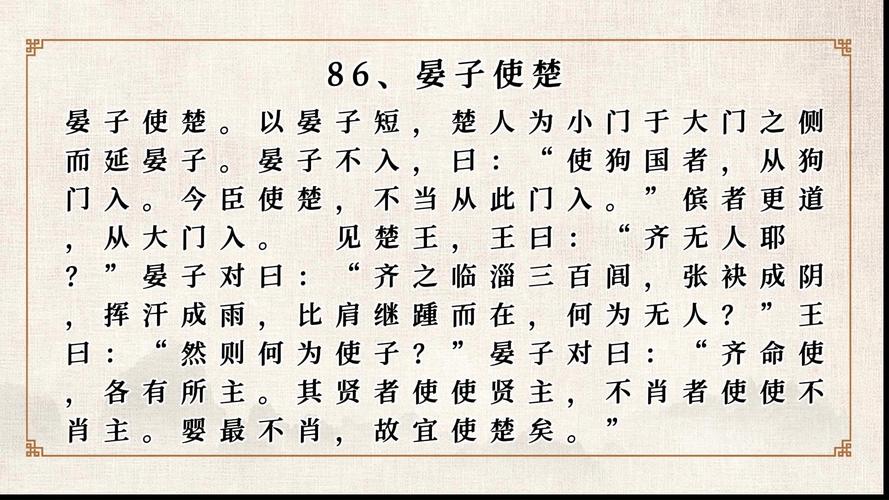 86、晏子使楚
晏子使楚。以晏子短，楚人为小门于大门之侧
而延晏子。晏子不入，曰：“使狗国者，从狗
门入。今臣使楚，不当从此门入。”傧者更道
，从大门入。 见楚王，王曰：“齐无人耶
？”晏子对曰：“齐之临淄三百闾，张袂成阴
，挥汗成雨，比肩继踵而在，何为无人？”王
曰：“然则何为使子？”晏子对曰：“齐命使
，各有所主。其贤者使使贤主，不肖者使使不
肖主。婴最不肖，故宜使楚矣。”